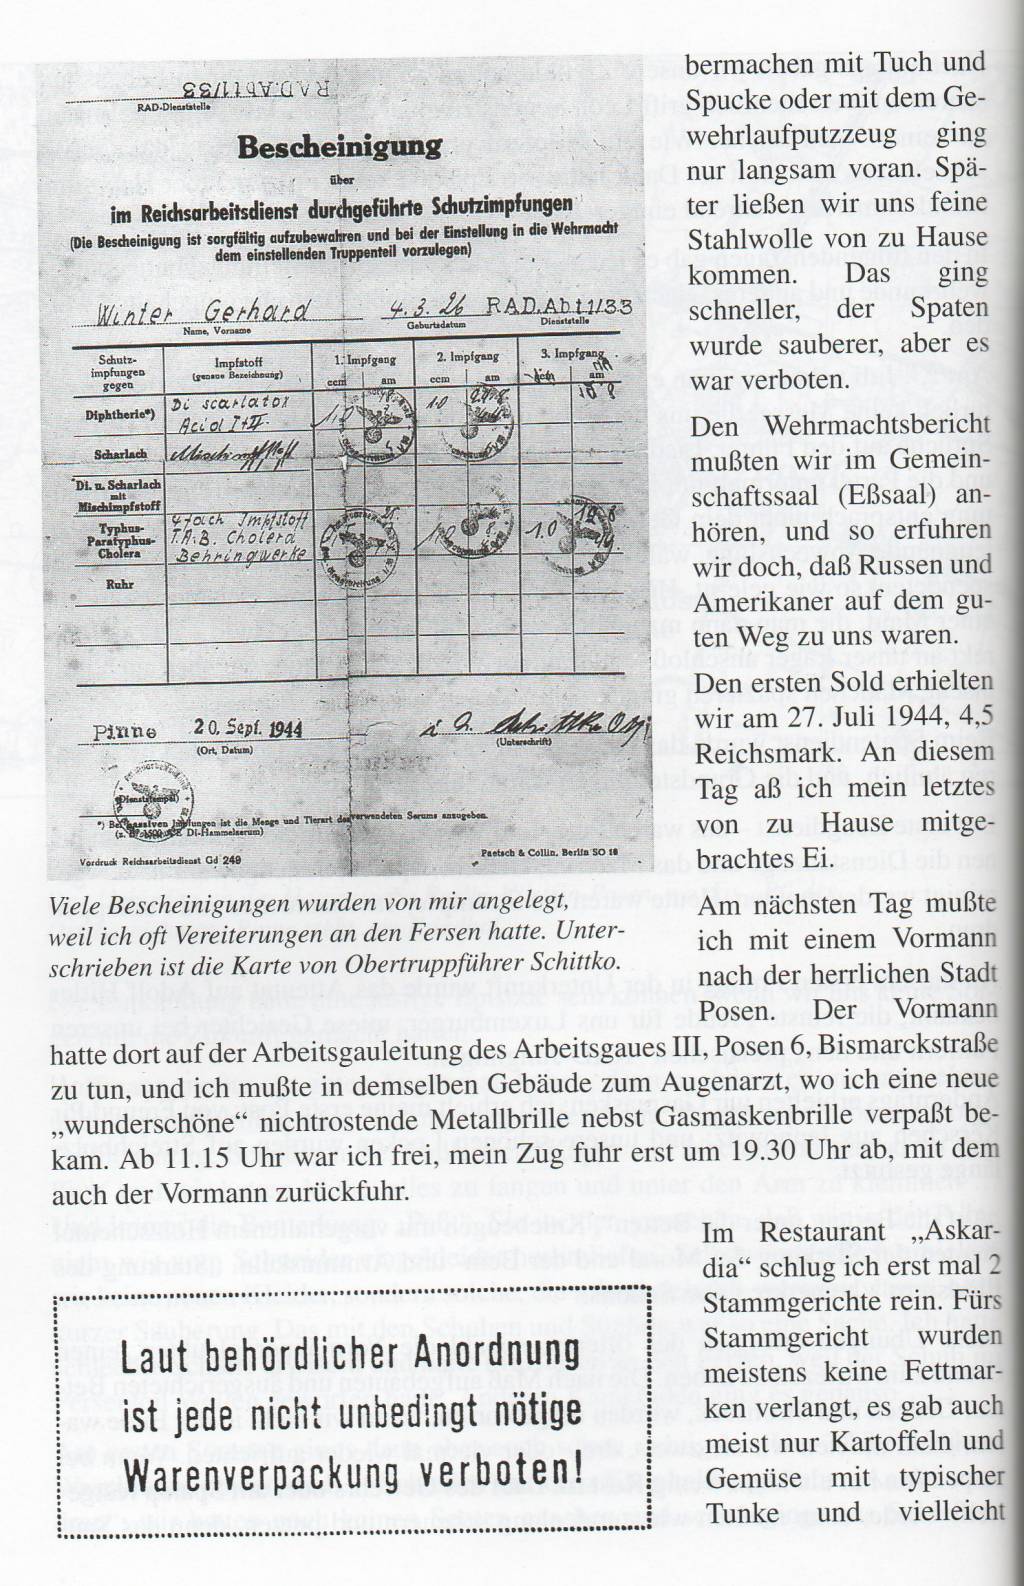 RAD.Abt 1/33
RAD-Dienststelle
Bescheinigung
über
im Reichsarbeitsdienst durchgeführte Schutzimpfungen
(Die Bescheinigung ist sorgfältig aufzubewahren und bei der Einstellung in die Wehrmacht
dem einstellenden Truppenteil vorzulegen)
Winter Gerhard 4.3.26 RAD.Abt 1/33
Name, Vorname Geburtsdatum Dienststelle
Schutz-
impfungen
gegen
Impfstoff
(genaue Bezeichnung)
1. Impfgang 2. Impfgang 3. Impfgang
ccm am ccm am ccm am
Diphtherie*) Di scarlatox
Acid I+II. 1,0 1.0
Scharlach
Di. u. Scharlach
mit
Mischimpfstoff
Typhus-
Paratyphus-
Cholera
4fach Impfstoff
T.A.B. Cholera
Behringwerke
1.0 1.0
Ruhr
Pinne 20. Sept. 1944
(Ort, Datum) (Unterschrift)
(Dienststempel)
*) Bei passiven Impfungen ist die Menge und Tierart des verwendeten Serums anzugeben.
(z. B. 1500 A.E. DI-Hammelserum)
Vordruck Reichsarbeitsdienst Gd 249 Paetsch & Collin, Berlin SO 16
Viele Bescheinigungen wurden von mir angelegt,
weil ich oft Vereiterungen an den Fersen hatte. Unter-
schrieben ist die Karte von Obertruppführer Schittko.
bermachen mit Tuch und
Spucke oder mit dem Ge-
wehrlaufputzzeug ging
nur langsam voran. Spä-
ter ließen wir uns feine
Stahlwolle von zu Hause
kommen. Das ging
schneller, der Spaten
wurde sauberer, aber es
war verboten.
Den Wehrmachtsbericht
mußten wir im Gemein-
schaftssaal (Eßsaal) an-
hören, und so erfuhren
wir doch, daß Russen und
Amerikaner auf dem gu-
ten Weg zu uns waren.
Den ersten Sold erhielten
wir am 27. Juli 1944, 4,5
Reichsmark. An diesem
Tag aß ich mein letztes
von zu Hause mitge-
brachtes Ei.
Am nächsten Tag mußte
ich mit einem Vormann
nach der herrlichen Stadt
Posen. Der Vormann
hatte dort auf der Arbeitsgauleitung des Arbeitsgaues III, Posen 6, Bismarckstraße
zu tun, und ich mußte in demselben Gebäude zum Augenarzt, wo ich eine neue
„wunderschöne“ nichtrostende Metallbrille nebst Gasmaskenbrille verpaßt be-
kam. Ab 11.15 Uhr war ich frei, mein Zug fuhr erst um 19.30 Uhr ab, mit dem
auch der Vormann zurückfuhr.
Laut behördlicher Anordnung
ist jede nicht unbedingt nötige
Warenverpackung verboten!
Im Restaurant „Askar-
dia“ schlug ich erst mal 2
Stammgerichte rein. Fürs
Stammgericht wurden
meistens keine Fettmar-
ken verlangt, es gab auch
meist nur Kartoffeln und
Gemüse mit typischer
Tunke und vielleicht